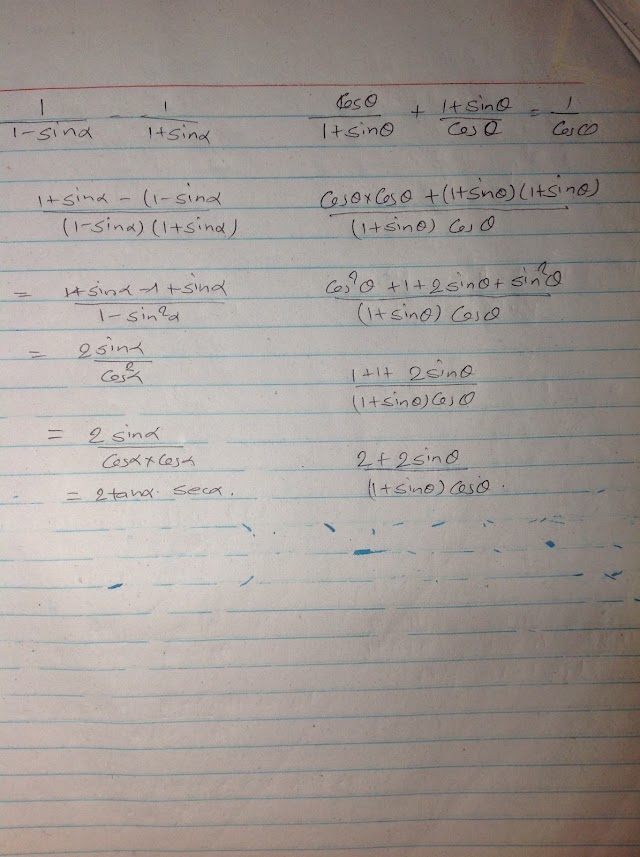 1/(1-sinα) - 1/(1+sinα)
(1+sinα - (1-sinα)/((1-sinα)(1+sinα))
= (1+sinα-1+sinα)/(1-sin²α)
= 2sinα/cos²α
= 2sinα/(cosα×cosα)
= 2tanα. secα.
Cosθ/(1+sinθ) + (1+sinθ)/Cosθ = 1/
(Cosθ×Cosθ+(1+sinθ)(1+sinθ))/((1+sinθ) Cosθ)
(Cos²θ+1+2sinθ+sin²θ)/((1+sinθ) Cosθ)
(1+1+ 2sinθ)/((1+sinθ)Cosθ)
(2+2sinθ)/((1+sinθ)Cosθ).